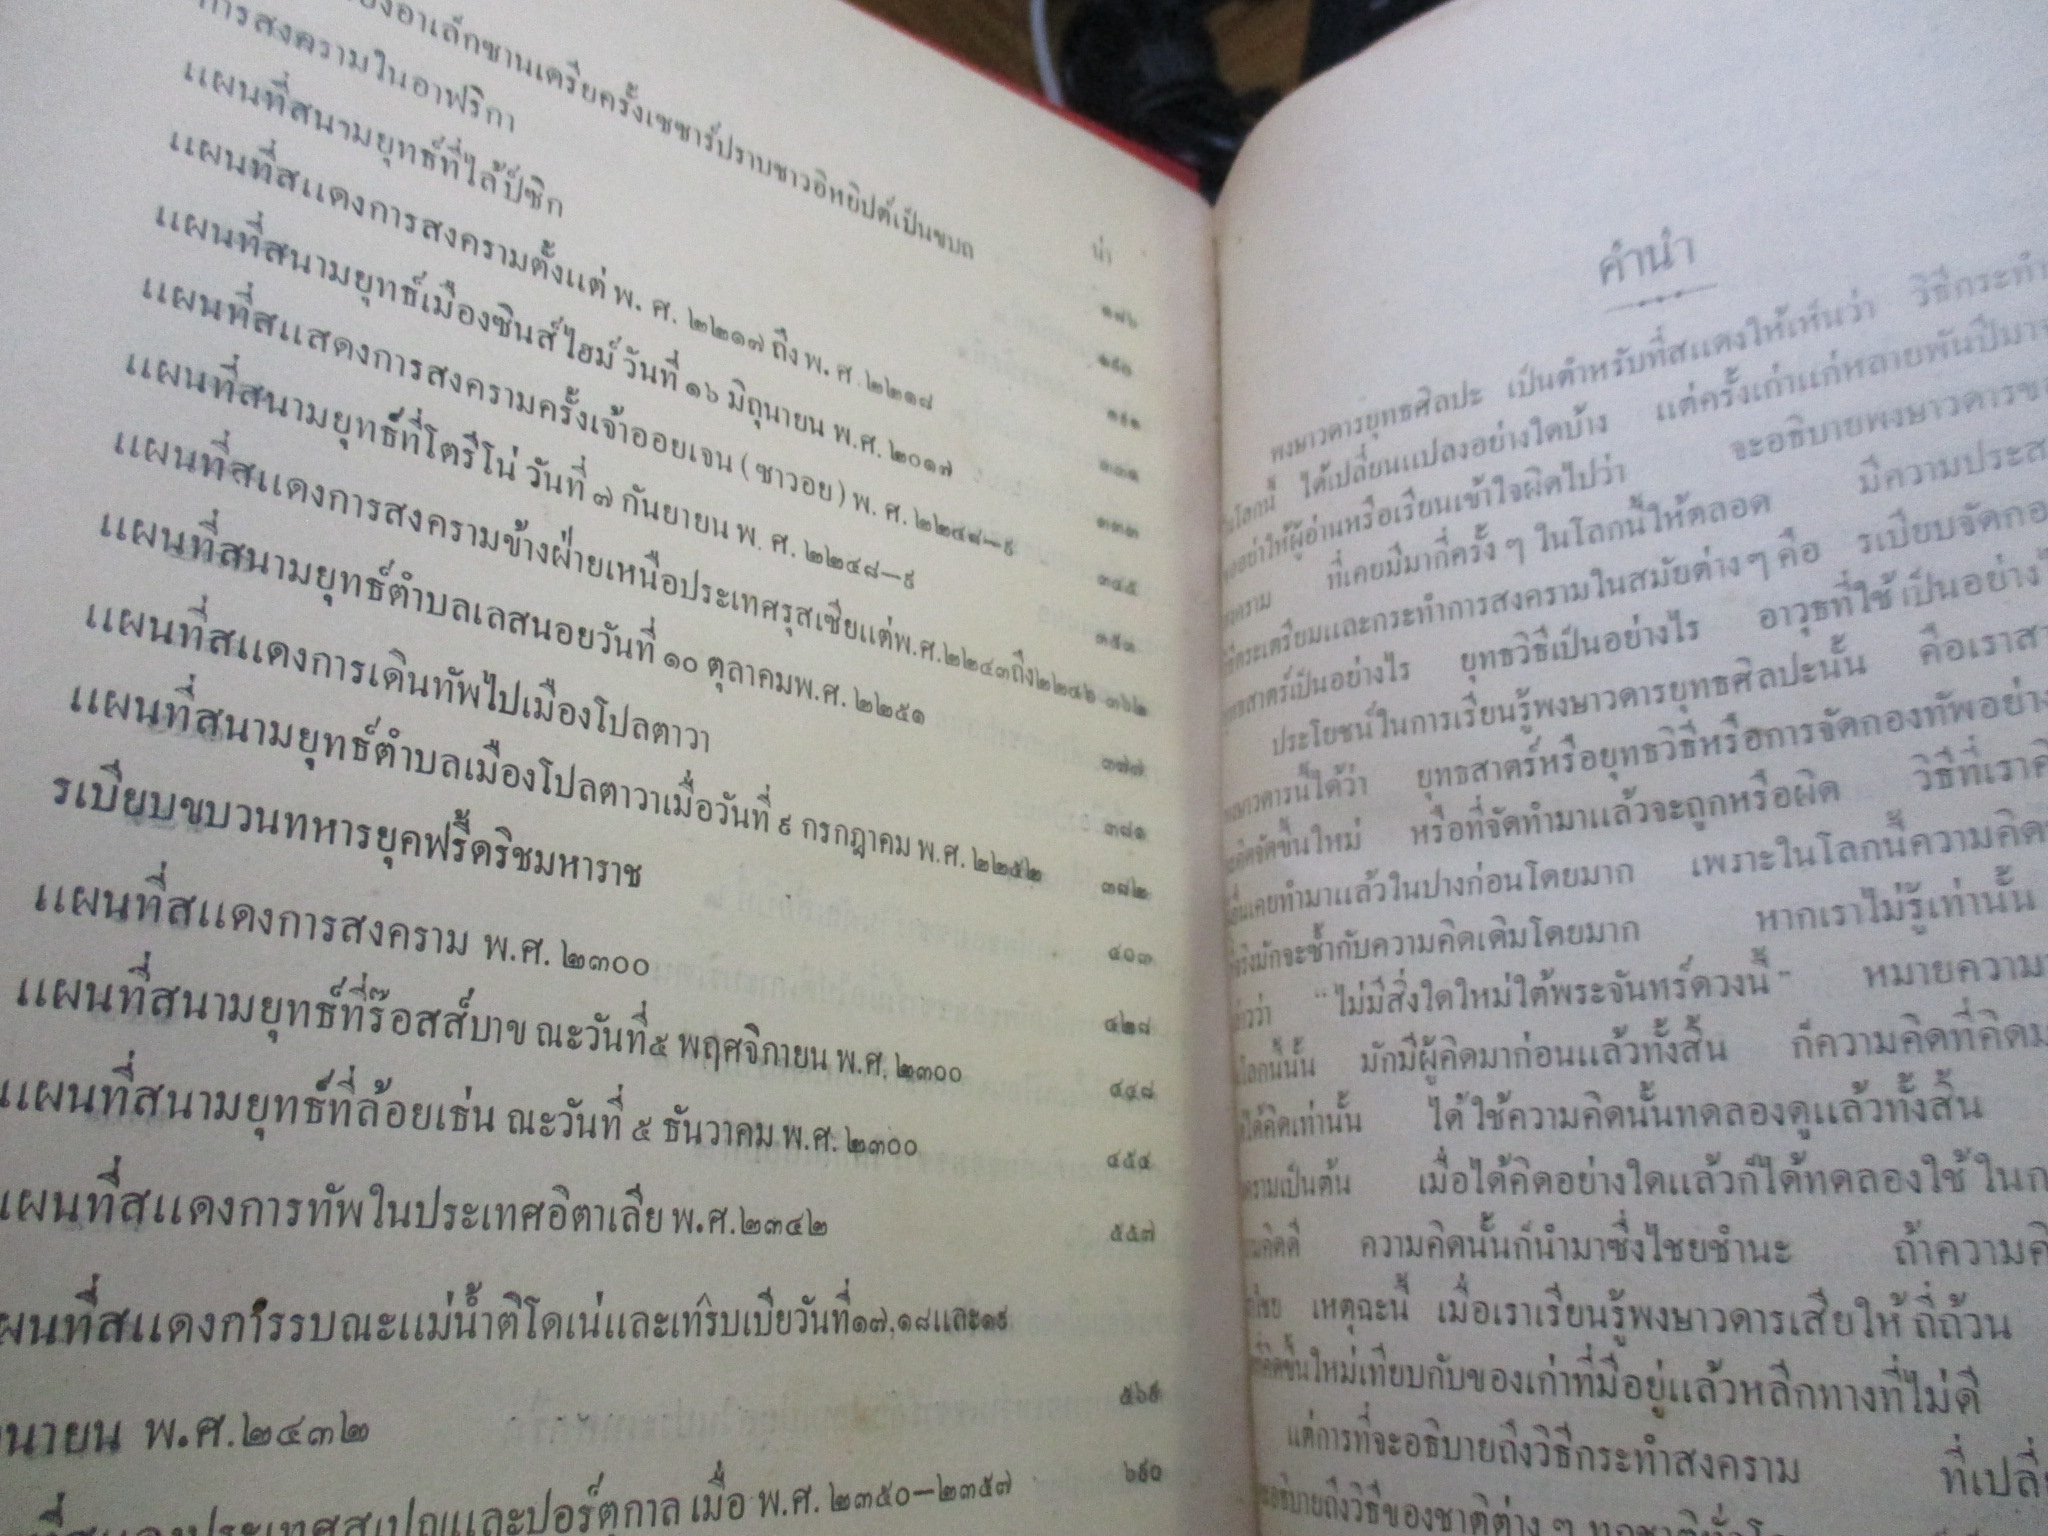 อาเล็กซานเดรียครั้งเซซาร์ปราบชาวอิหยิปต์เป็นขบถ
น่า
การสงครามในอาฟริกา
๑๘๖
แผนที่สนามยุทธ์ที่ไล้ป์ซิก
๑๙๐
แผนที่สแดงการสงครามตั้งแต่ พ. ศ. ๒๒๑๗ ถึง พ. ศ ๒๒๑๘
๑๙๑
แผนที่สนามยุทธ์เมืองซินส์ไฮม์ วันที่ ๑๖ มิถุนายน พ.ศ. ๒๐๑๗
แผนที่สแสดงการสงครามครั้งเจ้าออยเจน ( ซาวอย ) พ. ศ. ๒๒๔๘—๙
แผนที่สนามยุทธ์ที่โตรีโน่ วันที่ ๗ กันยายน พ. ศ. ๒๒๔๘—๙
๓๔๕
แผนที่สแดงการสงครามข้างฝ่ายเหนือประเทศรุสเซียแต่พ.ศ.๒๒๔๓ถึง๒๒๔๖ ๓๖๒
๓๕๓
แผนที่สนามยุทธ์ตำบลเลสนอยวันที่ ๑๐ ตุลาคมพ.ศ. ๒๒๕๑
๓๗๗
แผนที่สแดงการเดินทัพไปเมืองโปลตาวา
๓๘๑
แผนที่สนามยุทธ์ตำบลเมืองโปลตาวาเมื่อวันที่ ๙ กรกฎาคม พ.ศ. ๒๒๕๒ ๓๘๒
รเบียบขบวนทหารยุคฟรี้ดริชมหาราช
๔๐๓
แผนที่สแดงการสงคราม พ.ศ. ๒๓๐๐
๔๒๘
แผนที่สนามยุทธ์ที่ร๊อสส์บาข ณะวันที่๕ พฤศจิกายน พ.ศ. ๒๓๐๐
๔๔๘
แผนที่สนามยุทธ์ที่ล้อยเธ่น ณะวันที่ ๕ ธันวาคม พ.ศ. ๒๓๐๐
๔๕๔
แผนที่สแดงการทัพในประเทศอิตาเลีย พ.ศ.๒๓๔๒
๕๕๗
แผนที่สแดงการรบณะแม่น้ำติโดเน่และเทร์บเบียวันที่๑๗,๑๘และ๑๙
นายน พ.ศ.๒๔๓๒
๕๖๙
ประเทศสเปญและปอร์ตุกาล เมื่อ พ.ศ. ๒๓๕๐—๒๓๕๗
๖๙๐
คำนำ
พงษาวดารยุทธศิลปะ เป็นตำหรับที่สแดงให้เห็นว่า วิธีกระทำ
ในโลกนี้ ได้เปลี่ยนแปลงอย่างใดบ้าง แต่ครั้งเก่าแก่หลายพันปีมา
ขออย่าให้ผู้อ่านหรือเรียนเข้าใจผิดไปว่า จะอธิบายพงษาวดาร
สงคราม ที่เคยมีมากี่ครั้ง ๆ ในโลกนี้ให้ตลอด มีความประส
ตระเตรียมและกระทำการสงครามในสมัยต่าง ๆ คือ รเบียบจัดกอ
ยุทธสาตร์เป็นอย่างไร ยุทธวิธีเป็นอย่างไร อาวุธที่ใช้ เป็นอย่าง
ประโยชน์ในการเรียนรู้พงษาวดารยุทธศิลปะนั้น คือเราสา
พงษาวดารนี้ได้ว่า ยุทธสาตร์หรือยุทธวิธีหรือการจัดกองทัพอย่าง
จะคิดจัดขึ้นใหม่ หรือที่จัดทำมาแล้วจะถูกหรือผิด วิธีที่เรา
อื่นเคยทำมาแล้วในปางก่อนโดยมาก เพราะในโลกนี้ความคิด
จริงมักจะซ้ำกับความคิดเดิมโดยมาก หากเราไม่รู้เท่านั้น
ว่า “ ไม่มีสิ่งใดใหม่ใต้พระจันทร์ดวงนี้ ” หมายความ
โลกนี้นั้น มักมีผู้คิดมาก่อนแล้วทั้งสิ้น ก็ความคิดที่คิด
ได้คิดเท่านั้น ได้ ใช้ความคิดนั้นทดลองดูแล้วทั้งสิ้น
ความเป็นต้น เมื่อได้คิดอย่างใดแล้วก็ได้ทดลองใช้ ในก
ความคิดดี ความคิดนั้นก็นำมาซึ่งไชยชำนะ ถ้าความคิ
เหตุฉะนี้ เมื่อเราเรียนรู้พงษาวดารเสียให้ ถี่ถ้วน
ที่คิดขึ้นใหม่เทียบกับของเก่าที่มีอยู่แล้วหลีกทางที่ไม่ดี
แต่การที่จะอธิบายถึงวิธีกระทำสงคราม ที่เปลี่
จะอธิบายถึงวิธีของชาติต่าง ๆ ทุกชาติทั่วโ